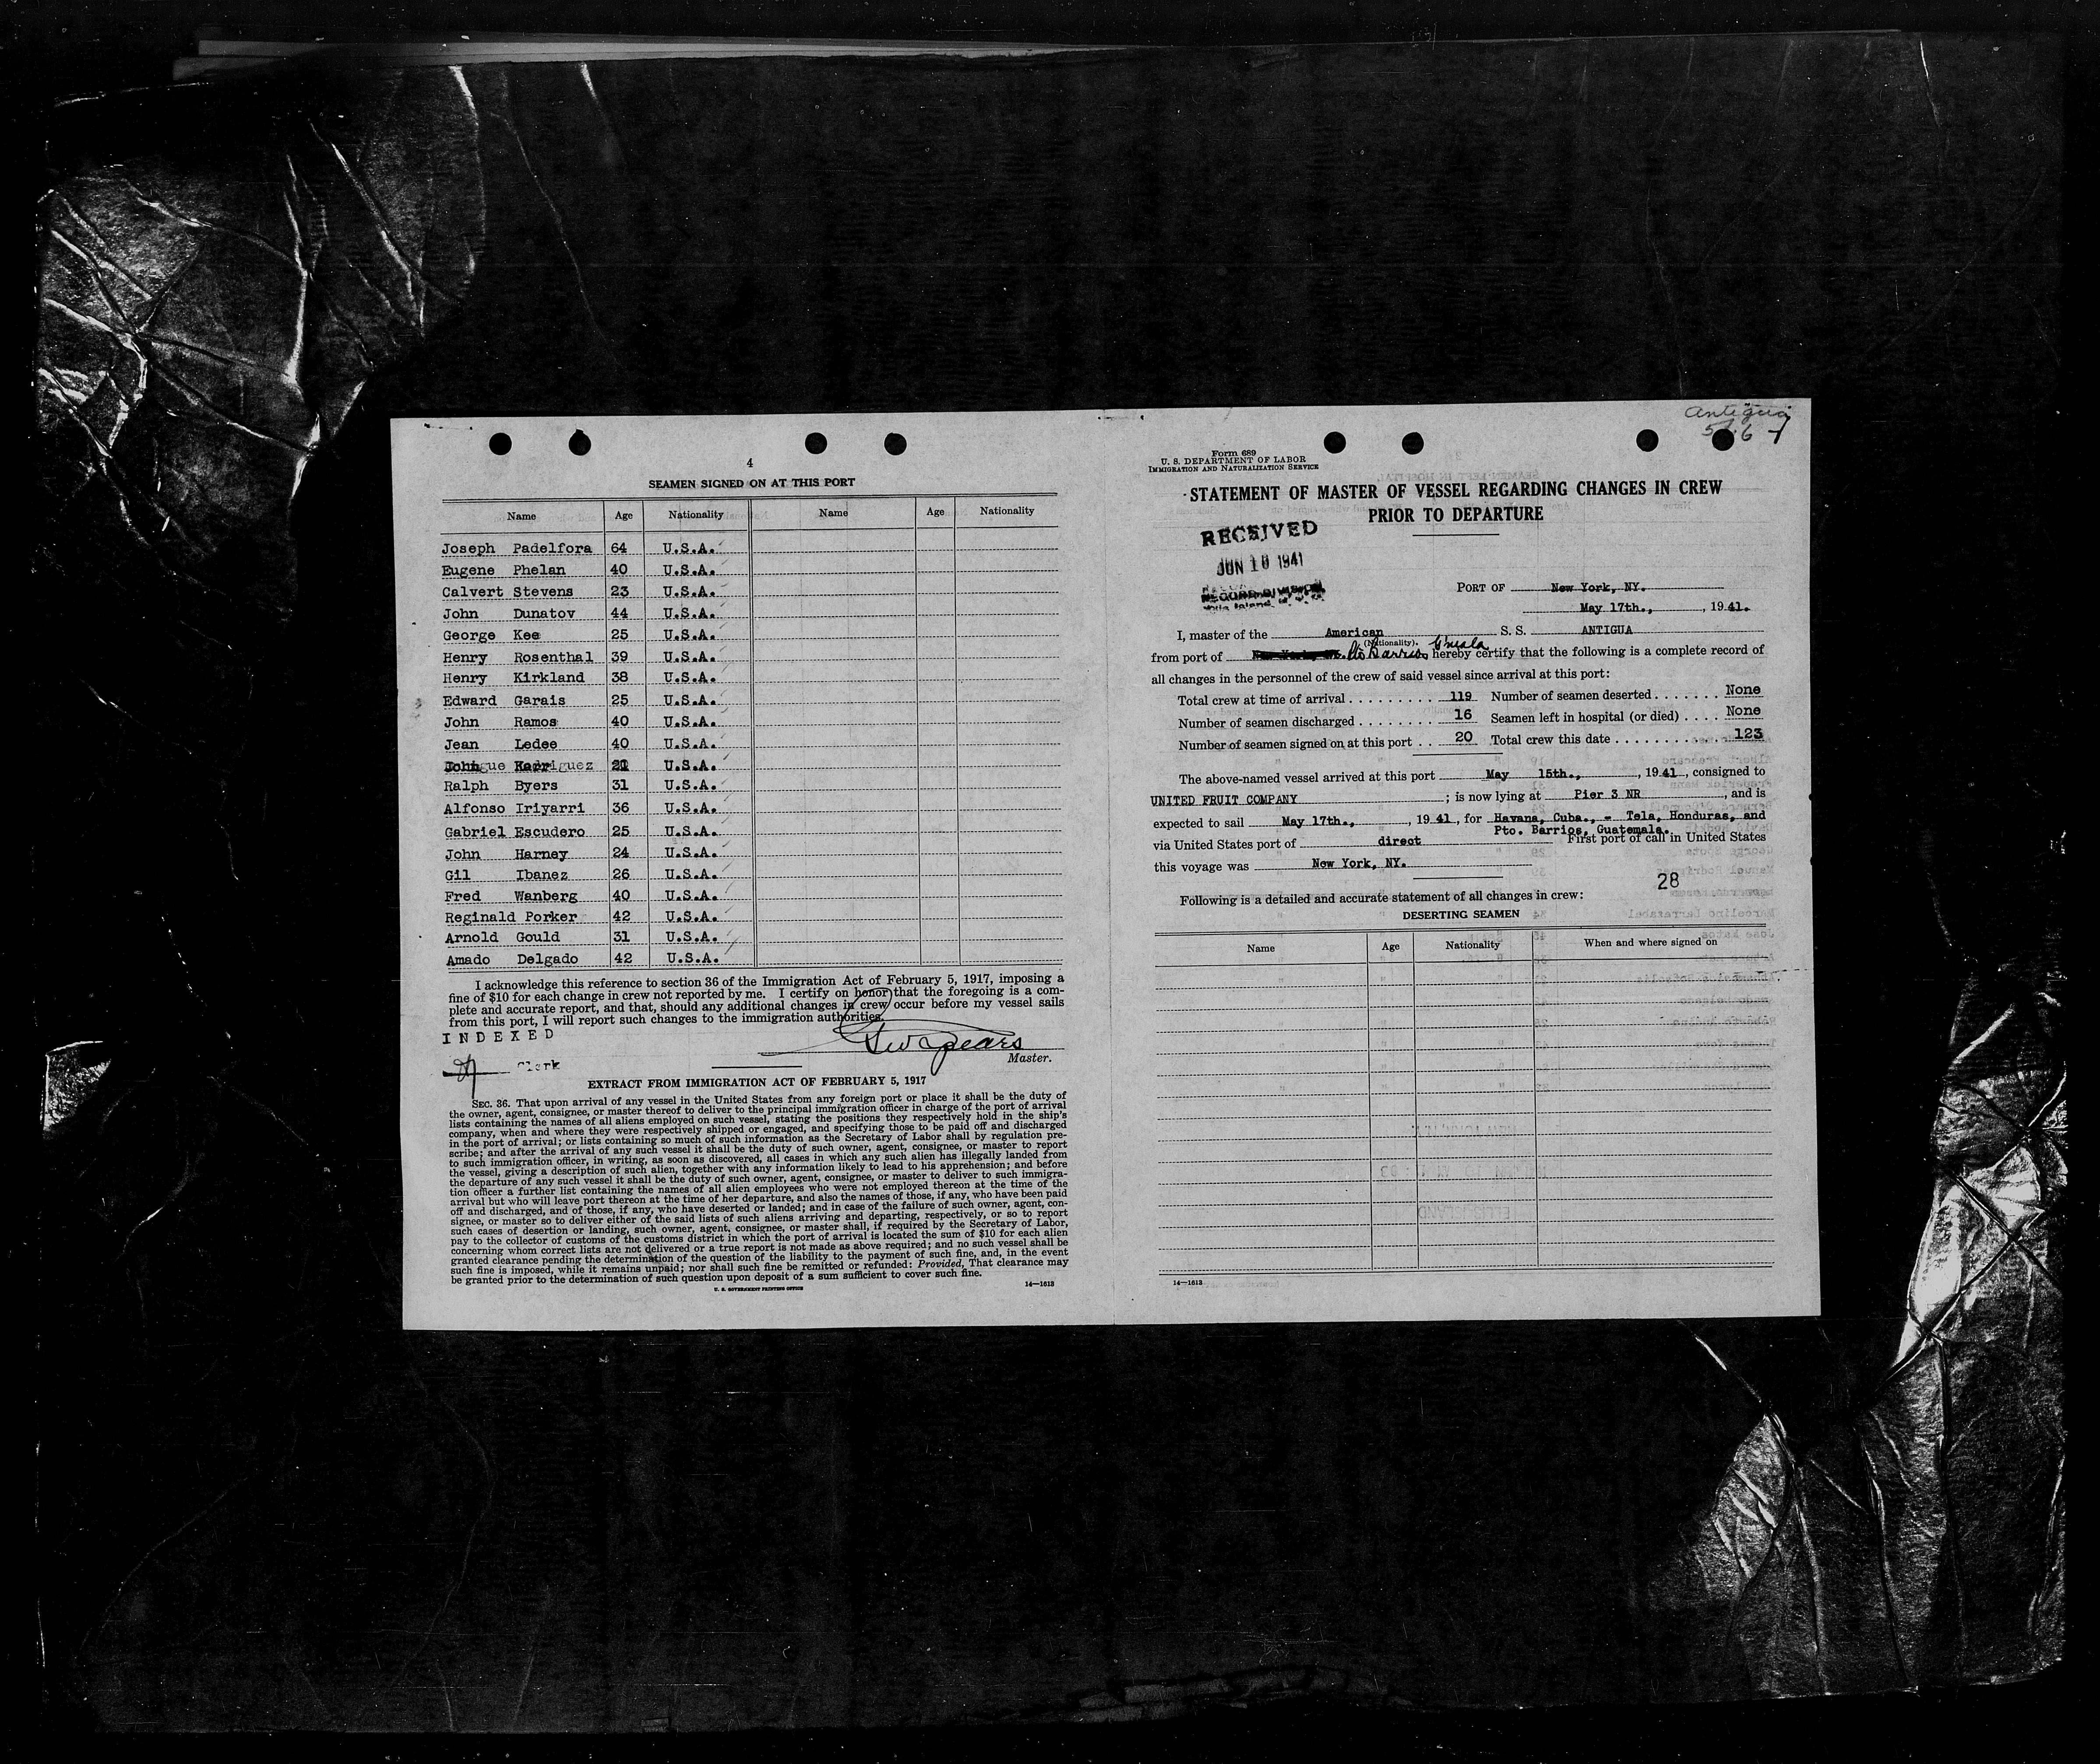 4
SEAMEN SIGNED ON AT THIS PORT
Name Age Nationality Name Age Nationality
Joseph Padelfora 64 U.S.A.
Eugene Phelan 40 U.S.A.
Calvert Stevens 23 U.S.A.
John Dunatov 44 U.S.A.
George Kee 25 U.S.A.
Henry Rosenthal 39 U.S.A.
Henry Kirkland 38 U.S.A.
Edward Garais 25 U.S.A.
John Ramos 40 U.S.A.
Jean Ledee 40 U.S.A.
U.S.A.
Ralph Byers 31 U.S.A.
Alfonso Iriyarri 36 U.S.A.
Gabriel Escudero 25 U.S.A.
John Harney 24 U.S.A.
Gil Ibanez 26 U.S.A.
Fred Wanberg 40 U.S.A.
Reginald Porker 42 U.S.A.
Arnold Gould 31 U.S.A.
Amado Delgado 42 U.S.A.
I acknowledge this reference to section 36 of the Immigration Act of February 5, 1917, imposing a
fine of $10 for each change in crew not reported by me. I certify on honor that the foregoing is a com-
plete and accurate report, and that, should any additional changes in crew occur before my vessel sails
from this port, I will report such changes to the immigration authorities.
INDEXED
Clerk
Master.
EXTRACT FROM IMMIGRATION ACT OF FEBRUARY 5, 1917
SEC. 36. That upon arrival of any vessel in the United States from any foreign port or place it shall be the duty of
the owner, agent, consignee, or master thereof to deliver to the principal immigration officer in charge of the port of arrival
lists containing the names of all aliens employed on such vessel, stating the positions they respectively hold in the ship's
company, when and where they were respectively shipped or engaged, and specifying those to be paid off and discharged
in the port of arrival; or lists containing so much of such information as the Secretary of Labor shall by regulation pre-
scribe; and after the arrival of any such vessel it shall be the duty of such owner, agent, consignee, or master to report
to such immigration officer, in writing, as soon as discovered, all cases in which any such alien has illegally landed from
the vessel, giving a description of such alien, together with any information likely to lead to his apprehension; and before
the departure of any such vessel it shall be the duty of such owner, agent, consignee, or master to deliver to such immigra-
tion officer a further list containing the names of all alien employees who were not employed thereon at the time of the
arrival but who will leave port thereon at the time of her departure, and also the names of those, if any, who have been paid
off and discharged, and of those, if any, who have deserted or landed; and in case of the failure of such owner, agent, con-
signee, or master so to deliver either of the said lists of such aliens arriving and departing, respectively, or so to report
such cases of desertion or landing, such owner, agent, consignee, or master shall, if required by the Secretary of Labor,
pay to the collector of customs of the customs district in which the port of arrival is located the sum of $10 for each alien
concerning whom correct lists are not delivered or a true report is not made as above required; and no such vessel shall be
granted clearance pending the determination of the question of the liability to the payment of such fine, and, in the event
such fine is imposed, while it remains unpaid; nor shall such fine be remitted or refunded: Provided, That clearance may
be granted prior to the determination of such question upon deposit of a sum sufficient to cover such fine.
U. S. GOVERNMENT PRINTING OFFICE 14—1613
Antigua
Form 689
U. S. DEPARTMENT OF LABOR
IMMIGRATION AND NATURALIZATION SERVICE
STATEMENT OF MASTER OF VESSEL REGARDING CHANGES IN CREW
PRIOR TO DEPARTURE
RECEIVED
JUN 10 1941
RECORD DIVISION
PORT OF New York, NY.
May 17th., , 1941.
I, master of the American S. S. ANTIGUA
(Nationality)
from port of Pto Barrios G'mala hereby certify that the following is a complete record of
all changes in the personnel of the crew of said vessel since arrival at this port:
Total crew at time of arrival 119 Number of seamen deserted None
Number of seamen discharged 16 Seamen left in hospital (or died) None
Number of seamen signed on at this port 20 Total crew this date 123
The above-named vessel arrived at this port May 15th., , 1941, consigned to
UNITED FRUIT COMPANY ; is now lying at Pier 3 NR , and is
expected to sail May 17th., , 1941, for Havana, Cuba., - Tela, Honduras, and
Pto. Barrios, Guatemala.
via United States port of direct First port of call in United States
this voyage was New York, NY.
28
Following is a detailed and accurate statement of all changes in crew:
DESERTING SEAMEN
Name Age Nationality When and where signed on
14—1613